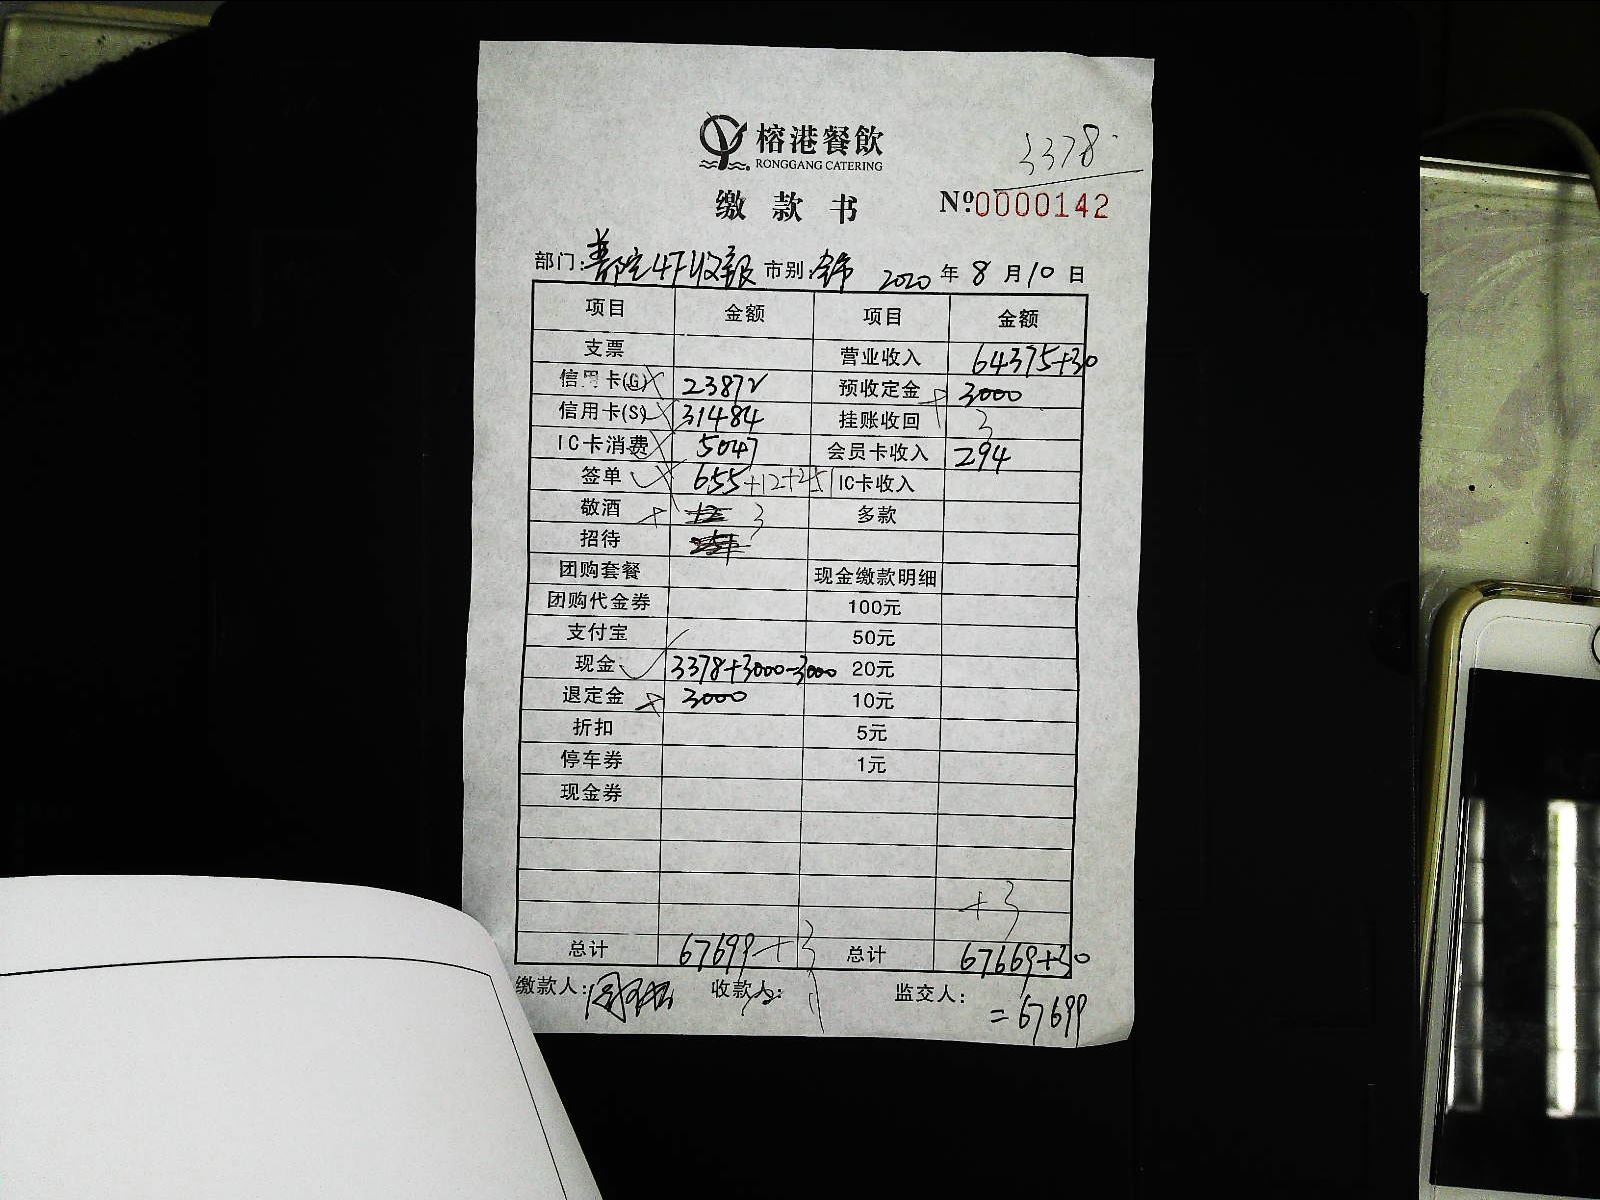 榕港餐飲
RONGGANG CATERING
3378
缴款书
№:0000142
部门: 4F收银 市别: 2020 年 8 月 10 日
项目 金额 项目 金额
支票 营业收入 64375+30
信用卡(G) 23872 预收定金 3000
信用卡(S) 31484 挂账收回 3
IC卡消费 5047 会员卡收入 294
签单 655+12+251 IC卡收入
敬酒 12 3 多款
招待
团购套餐 现金缴款明细
团购代金券 100元
支付宝 50元
现金 3378+3000-3000 20元
退定金 3000 10元
折扣 5元
停车券 1元
现金券
+3
总计 67699+3 总计 67669+30
缴款人: 收款人: 监交人:
=67699